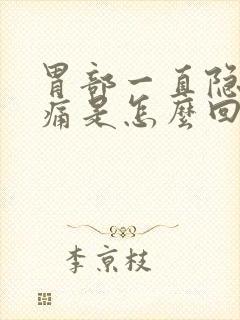 胃部一直隐
痛是怎麽回
李京枝